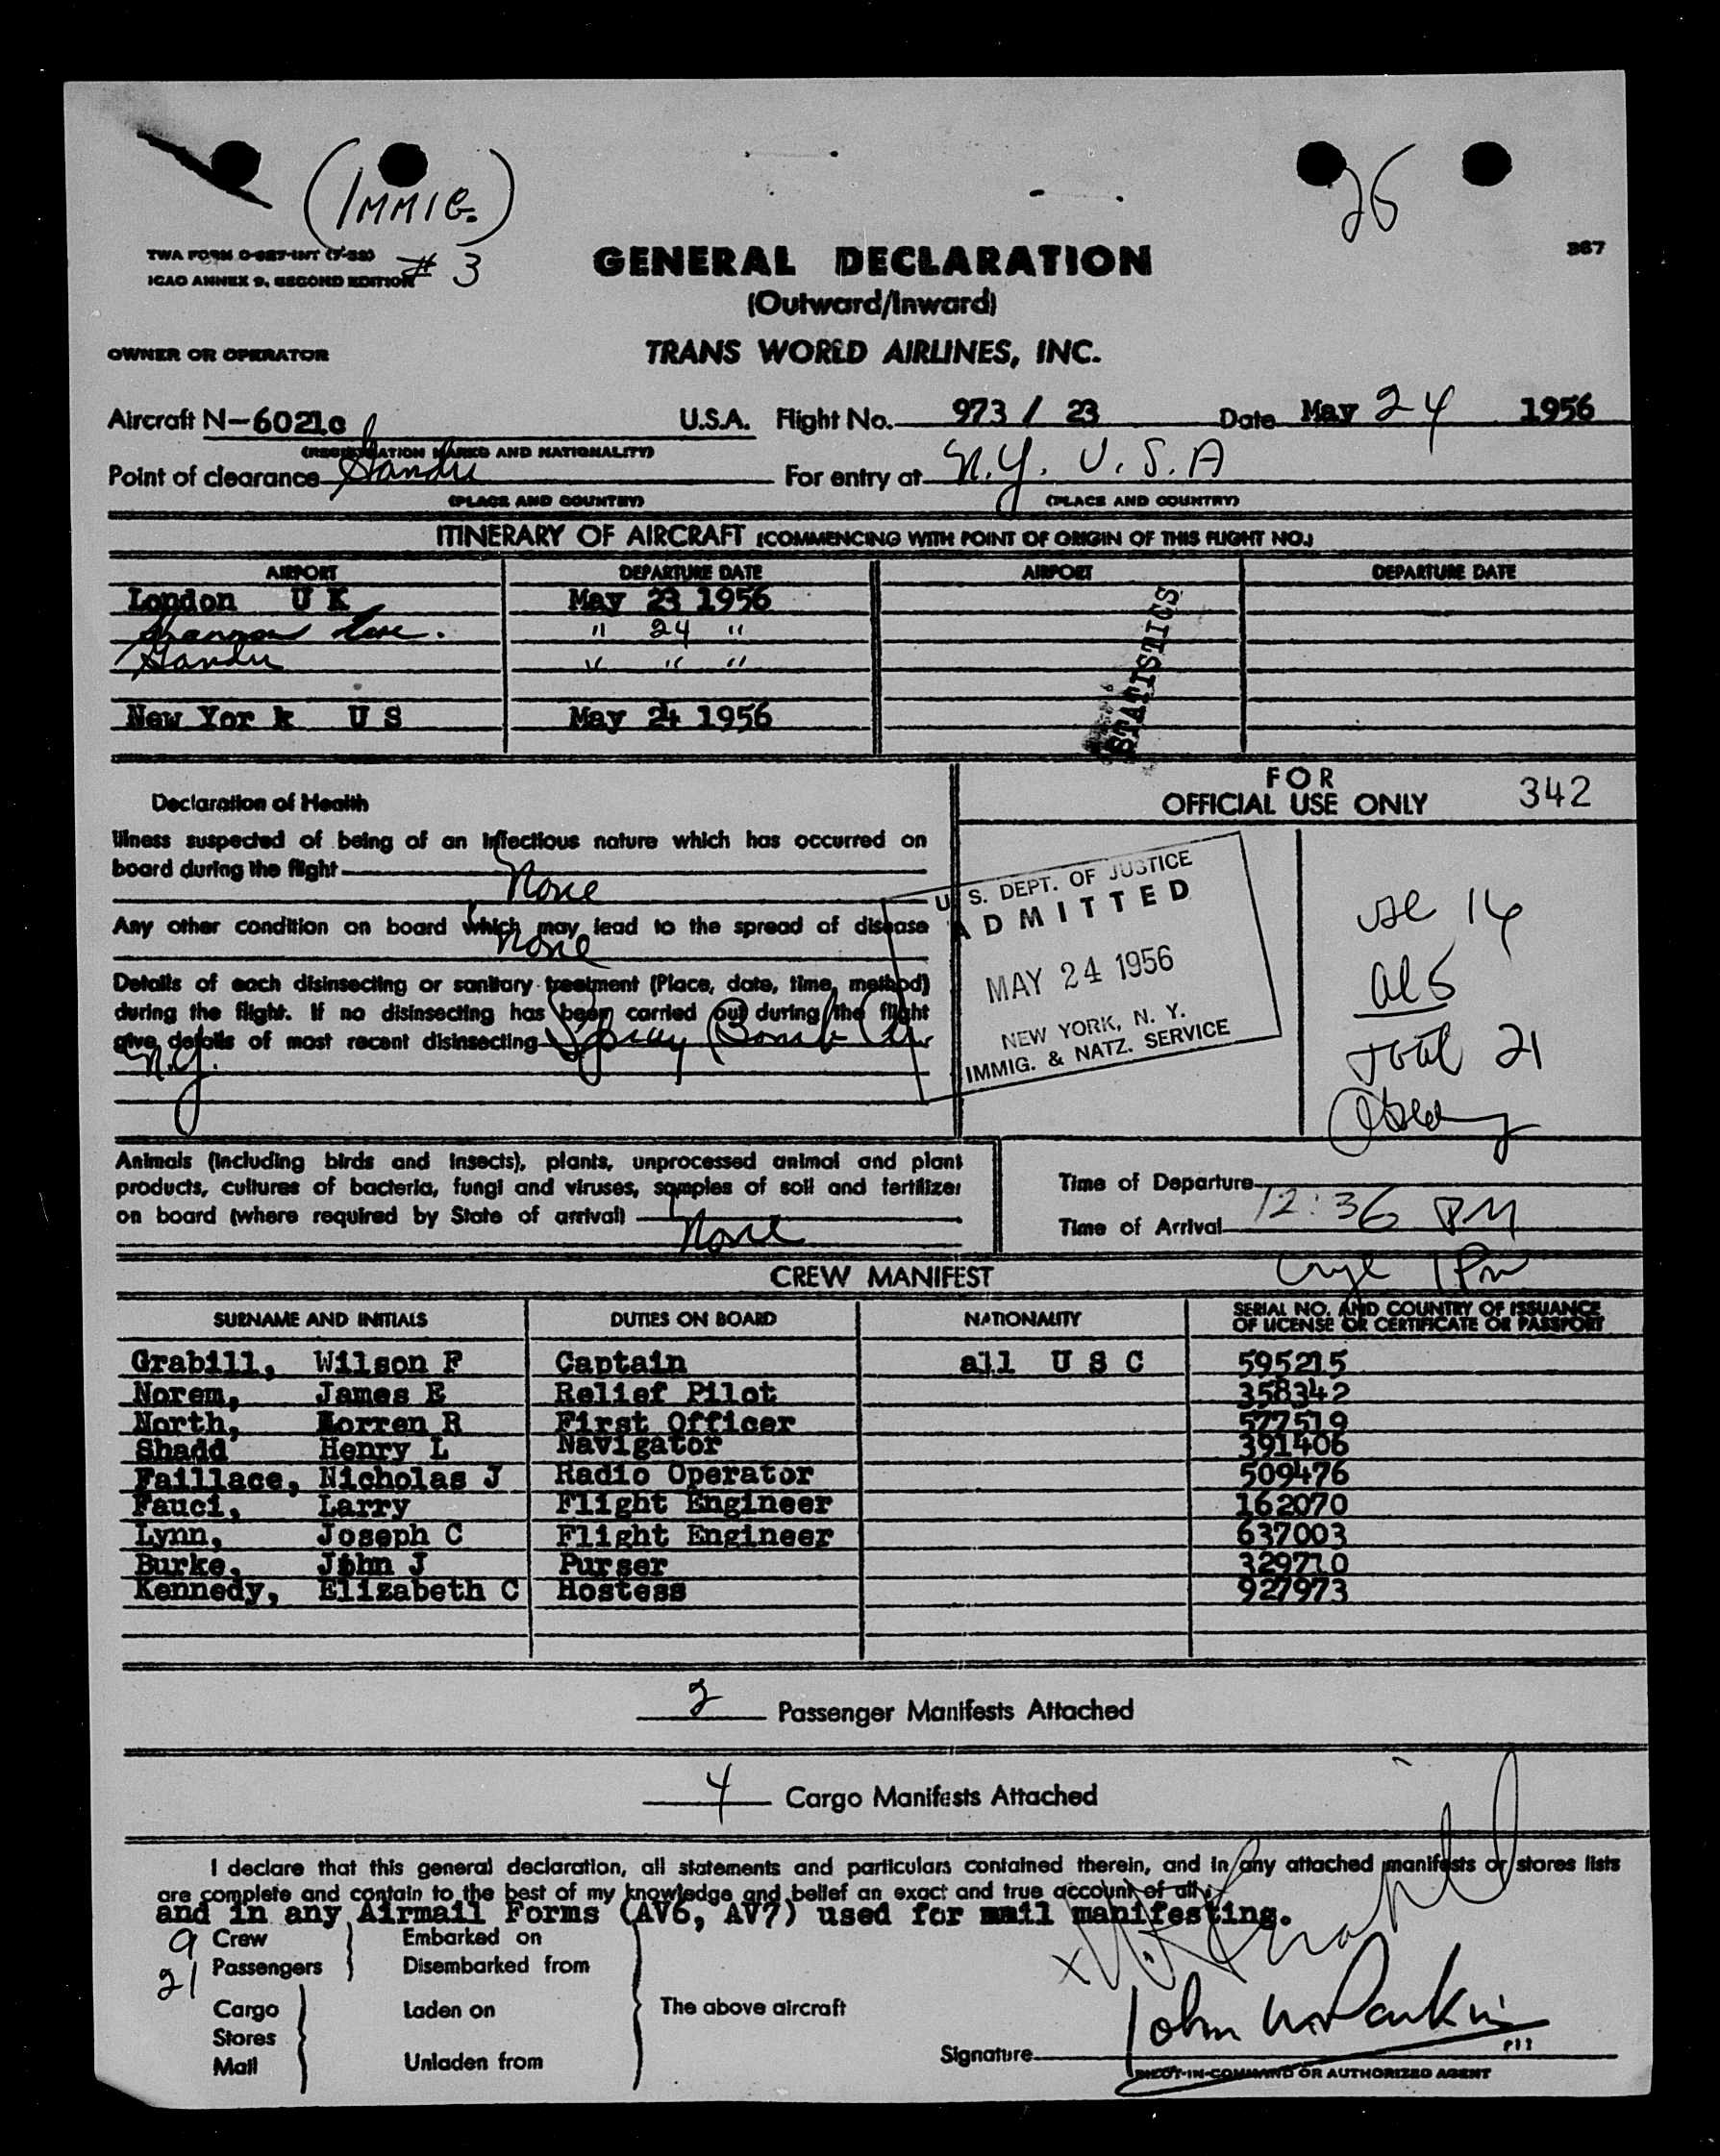 (IMMIG.)
26
TWA FORM O-927-INT (7-52)
ICAO ANNEX 9, SECOND EDITION # 3
367
GENERAL DECLARATION
(Outward/Inward)
OWNER OR OPERATOR TRANS WORLD AIRLINES, INC.
Aircraft N-6021c U.S.A. Flight No. 973 / 23 Date May 24 1956
(REGISTRATION MARKS AND NATIONALITY)
Point of clearance Gander For entry at N.Y. U.S.A
(PLACE AND COUNTRY) (PLACE AND COUNTRY)
ITINERARY OF AIRCRAFT (COMMENCING WITH POINT OF ORIGIN OF THIS FLIGHT NO.)
AIRPORT DEPARTURE DATE AIRPORT DEPARTURE DATE
London U K May 23 1956
Shannon Eire. " 24 "
Gander " " "
New Yor k U S May 24 1956
STATISTICS
FOR
OFFICIAL USE ONLY 342
Declaration of Health
Illness suspected of being of an infectious nature which has occurred on
board during the flight
None
Any other condition on board which may lead to the spread of disease
None
Details of each disinsecting or sanitary treatment (Place, date, time, method)
during the flight. If no disinsecting has been carried out during the flight
give details of most recent disinsecting Spray Bomb
N.Y.
U. S. DEPT. OF JUSTICE
ADMITTED
MAY 24 1956
NEW YORK, N. Y.
IMMIG. & NATZ. SERVICE
usc 16
al 5
Total 21
Animals (including birds and insects), plants, unprocessed animal and plant
products, cultures of bacteria, fungi and viruses, samples of soil and fertilizer
on board (where required by State of arrival)
None
Time of Departure
Time of Arrival 12:36 PM
1 PM
CREW MANIFEST
SURNAME AND INITIALS DUTIES ON BOARD NATIONALITY SERIAL NO. AND COUNTRY OF ISSUANCE OF LICENSE OR CERTIFICATE OR PASSPORT
Grabill, Wilson F Captain all U S C 595215
Norem, James E Relief Pilot 358342
North, Lorren R First Officer 577519
Shadd Henry L Navigator 391406
Faillace, Nicholas J Radio Operator 509476
Fauci, Larry Flight Engineer 162070
Lynn, Joseph C Flight Engineer 637003
Burke, John J Purser 329710
Kennedy, Elizabeth C Hostess 927973
2 Passenger Manifests Attached
4 Cargo Manifests Attached
I declare that this general declaration, all statements and particulars contained therein, and in any attached manifests or stores lists
are complete and contain to the best of my knowledge and belief an exact and true account of all
and in any Airmail Forms (AV6, AV7) used for mail manifesting.
9 Crew Embarked on
21 Passengers Disembarked from
Cargo Laden on The above aircraft
Stores
Mail Unladen from
Signature John
PILOT-IN-COMMAND OR AUTHORIZED AGENT